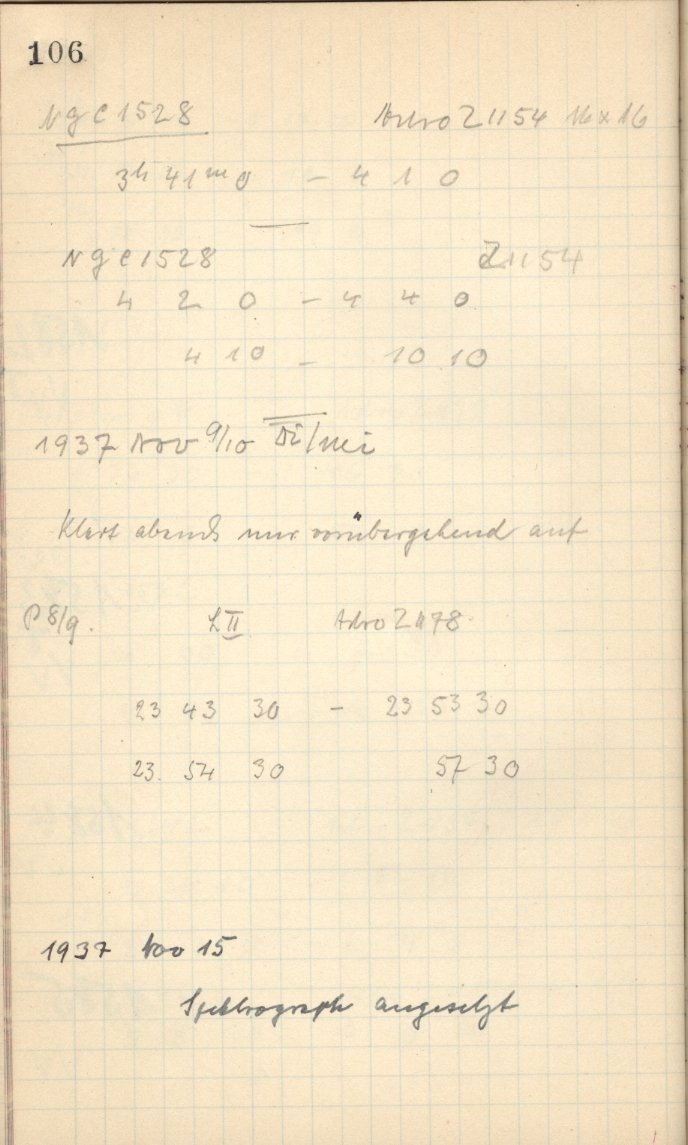 106
NgC 1528 Astro Z 1154 16 x 16
3h 41m 0 – 4 1 0
NgC 1528 Z 1154
4 2 0 – 4 4 0
4 10 – 10 10
1937 Nov 9/10 Di/Mi
Klart abends nur vorübergehend auf
P 8/9. L II Astro Z 1178
23 43 30 – 23 53 30
23. 54 30 57 30
1937 Nov 15
Spektrograph angesetzt